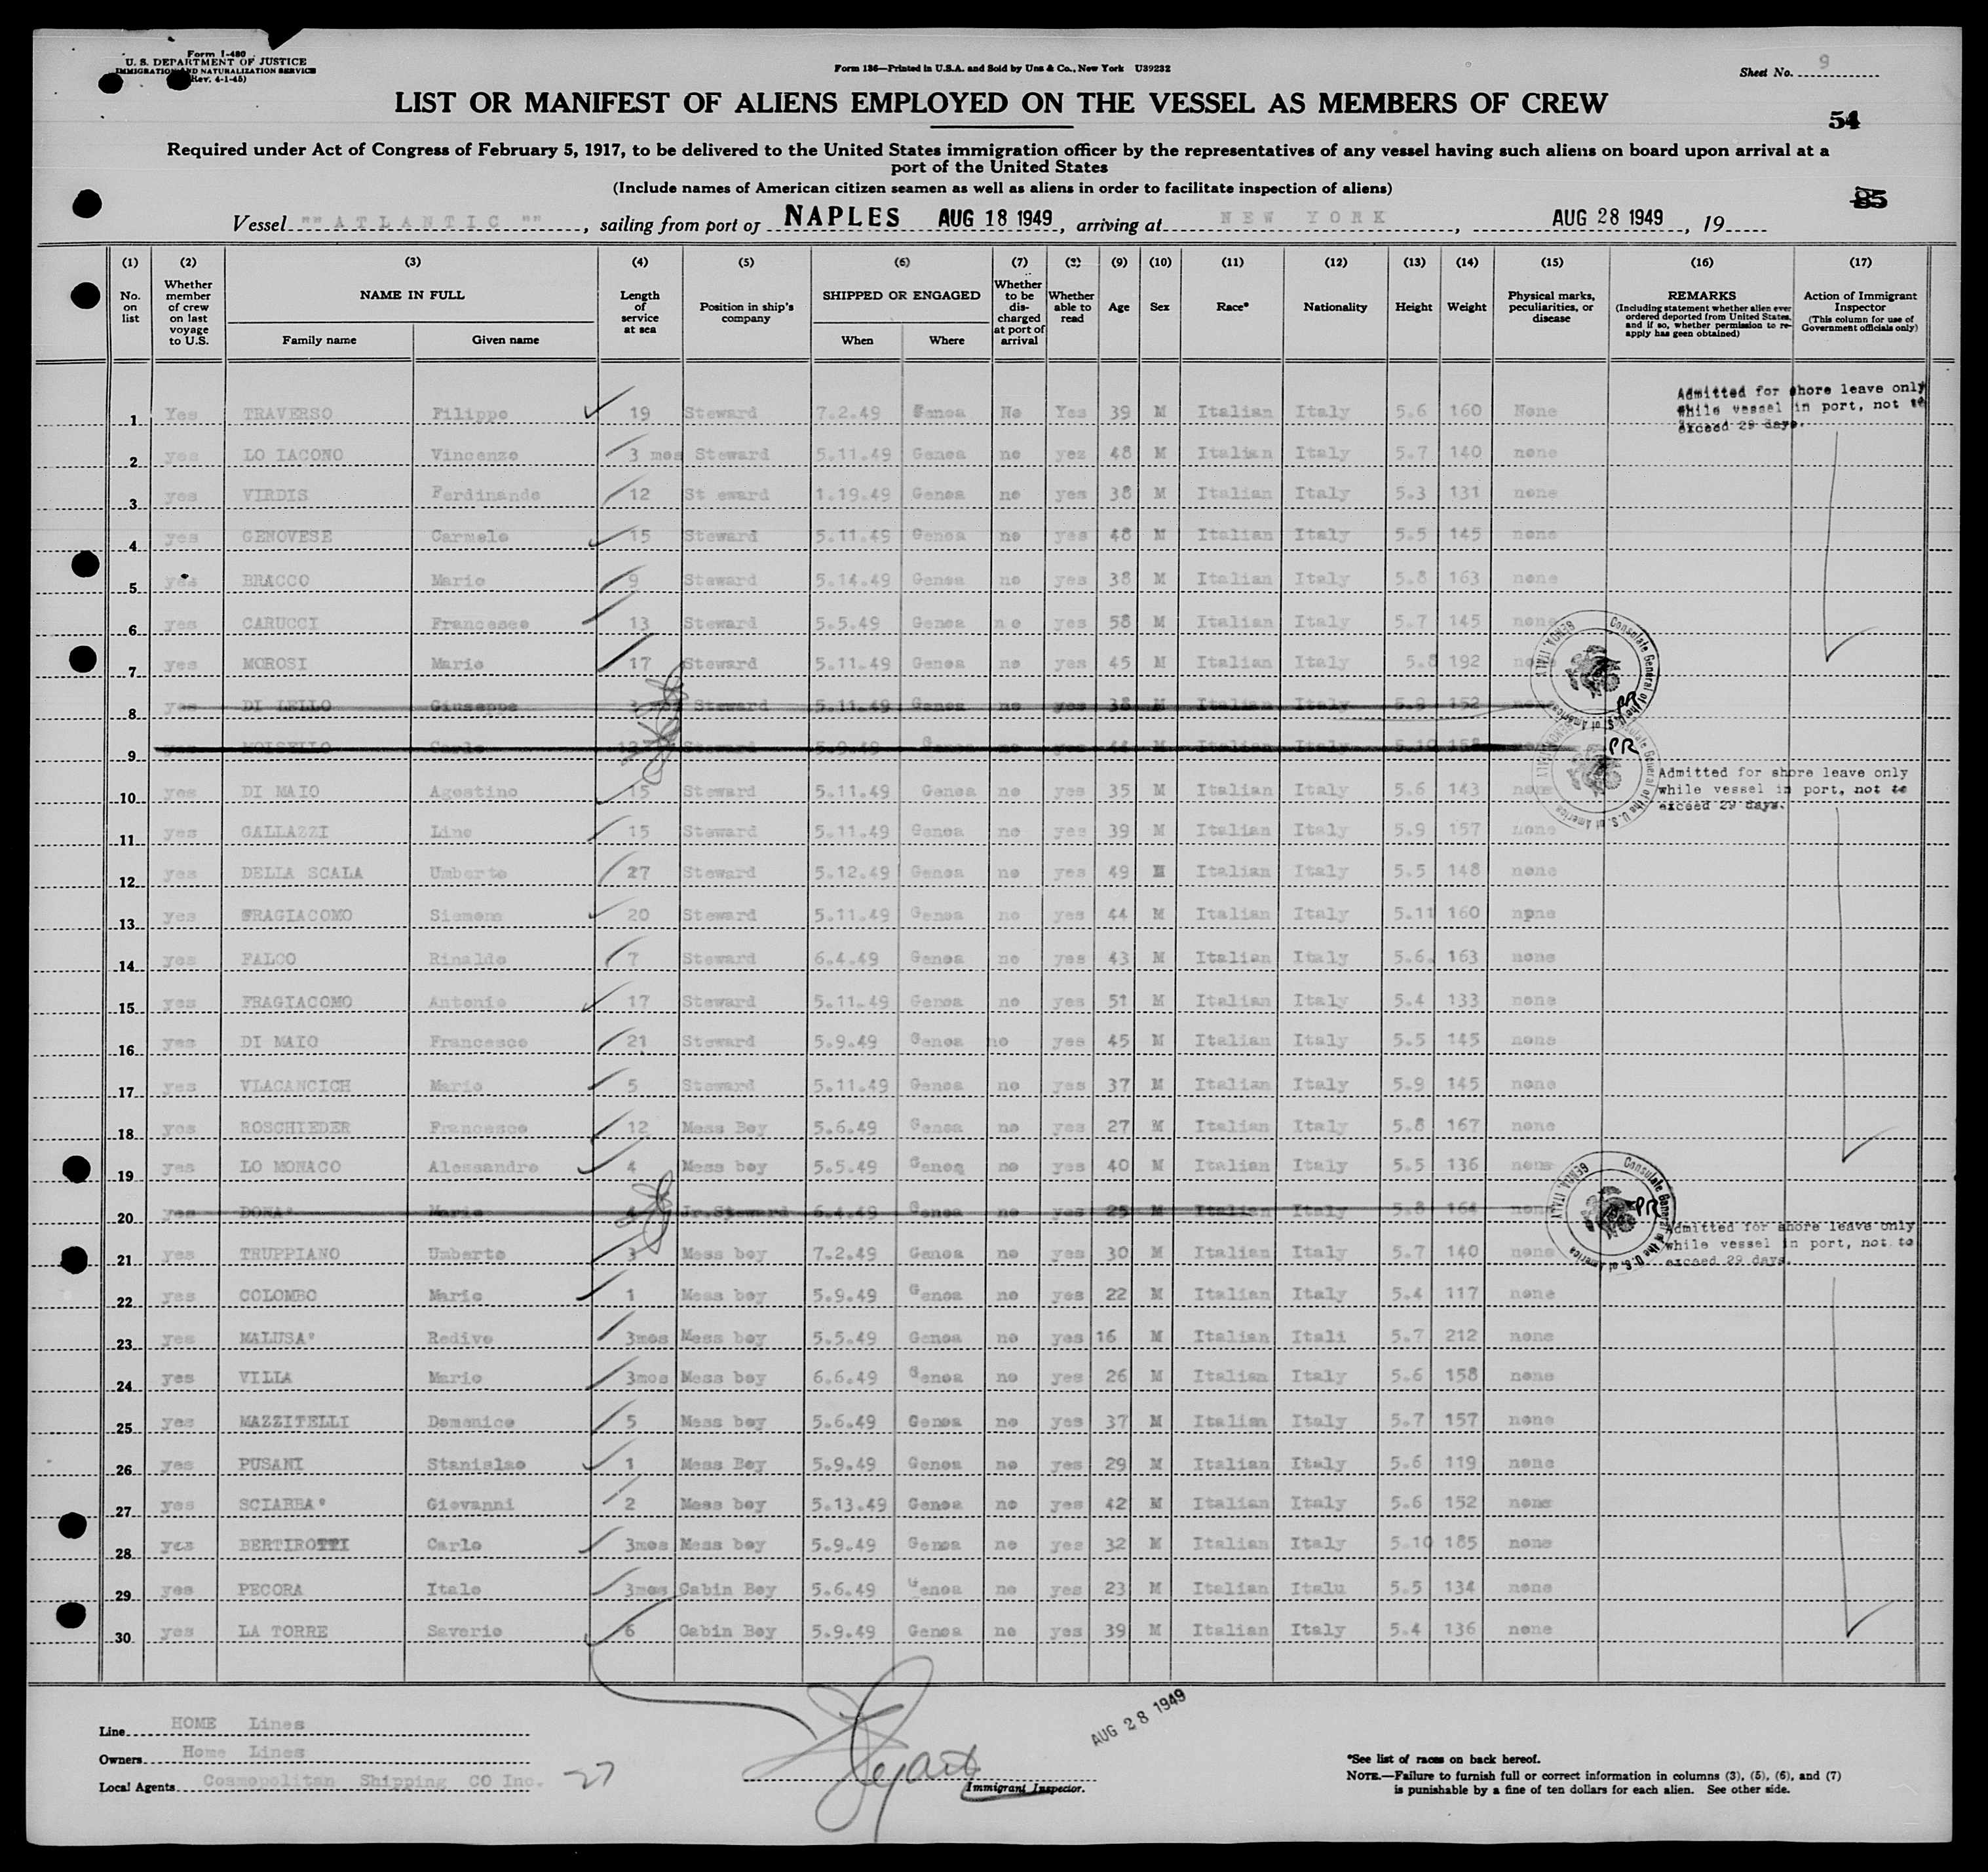 Form I-480
U. S. DEPARTMENT OF JUSTICE
IMMIGRATION AND NATURALIZATION SERVICE
(Rev. 4-1-45)
Form 136—Printed in U.S.A. and Sold by Unz & Co., New York U39232
Sheet No. 9
LIST OR MANIFEST OF ALIENS EMPLOYED ON THE VESSEL AS MEMBERS OF CREW
54
Required under Act of Congress of February 5, 1917, to be delivered to the United States immigration officer by the representatives of any vessel having such aliens on board upon arrival at a
port of the United States
(Include names of American citizen seamen as well as aliens in order to facilitate inspection of aliens)
85
Vessel "" ATLANTIC "", sailing from port of NAPLES AUG 18 1949, arriving at NEW YORK, AUG 28 1949, 19
(1) (2) (3) (4) (5) (6) (7) (8) (9) (10) (11) (12) (13) (14) (15) (16) (17)
No. on list
Whether member of crew on last voyage to U.S.
NAME IN FULL
Family name Given name
Length of service at sea
Position in ship's company
SHIPPED OR ENGAGED
When Where
Whether to be discharged at port of arrival
Whether able to read
Age
Sex
Race*
Nationality
Height
Weight
Physical marks, peculiarities, or disease
REMARKS
(Including statement whether alien ever ordered deported from United States, and if so, whether permission to re-apply has geen obtained)
Action of Immigrant Inspector
(This column for use of Government officials only)
1 Yes TRAVERSO Filippo 19 Steward 7.2.49 Genoa No Yes 39 M Italian Italy 5.6 160 None
Admitted for shore leave only
while vessel in port, not to
exceed 29 days.
2 yes LO IACONO Vincenzo 3 mos Steward 5.11.49 Genoa no yes 48 M Italian Italy 5.7 140 none
3 yes VIRDIS Ferdinando 12 St eward 1.19.49 Genoa no yes 38 M Italian Italy 5.3 131 none
4 yes GENOVESE Carmelo 15 Steward 5.11.49 Genoa no yes 48 M Italian Italy 5.5 145 none
5 yes BRACCO Mario 9 Steward 5.14.49 Genoa no yes 38 M Italian Italy 5.8 163 none
6 yes CARUCCI Francesco 13 Steward 5.5.49 Genoa no yes 58 M Italian Italy 5.7 145 none
7 yes MOROSI Mario 17 Steward 5.11.49 Genoa no yes 45 M Italian Italy 5.8 192 none
8 yes DI LELLO Giuseppe Steward 5.11.49 Genoa no yes 38 M Italian Italy 5.9 152 none
Consulate General of the U.S. of America GENOA, ITALY
PR
9 yes NOISELLO Carlo Steward 5.9.49 Genoa no yes 44 M Italian Italy 5.10 158
Consulate General of the U.S. of America GENOA, ITALY
PR
10 yes DI MAIO Agostino 15 Steward 5.11.49 Genoa no yes 35 M Italian Italy 5.6 143 none
Admitted for shore leave only
while vessel in port, not to
exceed 29 days.
11 yes GALLAZZI Lino 15 Steward 5.11.49 Genoa no yes 39 M Italian Italy 5.9 157 none
12 yes DELLA SCALA Umberto 27 Steward 5.12.49 Genoa no yes 49 M Italian Italy 5.5 148 none
13 yes FRAGIACOMO Simeone 20 Steward 5.11.49 Genoa no yes 44 M Italian Italy 5.11 160 none
14 yes FALCO Rinaldo 7 Steward 6.4.49 Genoa no yes 43 M Italian Italy 5.6. 163 none
15 yes FRAGIACOMO Antonio 17 Steward 5.11.49 Genoa no yes 51 M Italian Italy 5.4 133 none
16 yes DI MAIO Francesco 21 Steward 5.9.49 Genoa no yes 45 M Italian Italy 5.5 145 none
17 yes VLACANCICH Mario 5 Steward 5.11.49 Genoa no yes 37 M Italian Italy 5.9 145 none
18 yes ROSCHIEDER Francesco 12 Mess Boy 5.6.49 Genoa no yes 27 M Italian Italy 5.8 167 none
19 yes LO MONACO Alessandro 4 Mess boy 5.5.49 Genoa no yes 40 M Italian Italy 5.5 136 none
20 yes DONA' Mario 4 Jr.Steward 6.4.49 Genoa no yes 25 M Italian Italy 5.8 164 none
Consulate General of the U.S. of America GENOA, ITALY
PR
21 yes TRUPPIANO Umberto 3 Mess boy 7.2.49 Genoa no yes 30 M Italian Italy 5.7 140 none
Admitted for shore leave only
while vessel in port, not to
exceed 29 days.
22 yes COLOMBO Mario 1 Mess boy 5.9.49 Genoa no yes 22 M Italian Italy 5.4 117 none
23 yes MALUSA' Redivo 3mos Mess boy 5.5.49 Genoa no yes 16 M Italian Itali 5.7 212 none
24 yes VILLA Mario 3mos Mess boy 6.6.49 Genoa no yes 26 M Italian Italy 5.6 158 none
25 yes MAZZITELLI Domenico 5 Mess boy 5.6.49 Genoa no yes 37 M Italian Italy 5.7 157 none
26 yes PUSANI Stanislao 1 Mess Boy 5.9.49 Genoa no yes 29 M Italian Italy 5.6 119 none
27 yes SCIARRA' Giovanni 2 Mess boy 5.13.49 Genoa no yes 42 M Italian Italy 5.6 152 none
28 yes BERTIROTTI Carlo 3mos Mess boy 5.9.49 Genoa no yes 32 M Italian Italy 5.10 185 none
29 yes PECORA Italo 3mos Cabin Boy 5.6.49 Genoa no yes 23 M Italian Italu 5.5 134 none
30 yes LA TORRE Saverio 6 Cabin Boy 5.9.49 Genoa no yes 39 M Italian Italy 5.4 136 none
Line HOME Lines
Owners Home Lines
Local Agents Cosmopolitan Shipping CO Inc. 27
AUG 28 1949
Immigrant Inspector.
*See list of races on back hereof.
NOTE.—Failure to furnish full or correct information in columns (3), (5), (6), and (7)
is punishable by a fine of ten dollars for each alien. See other side.